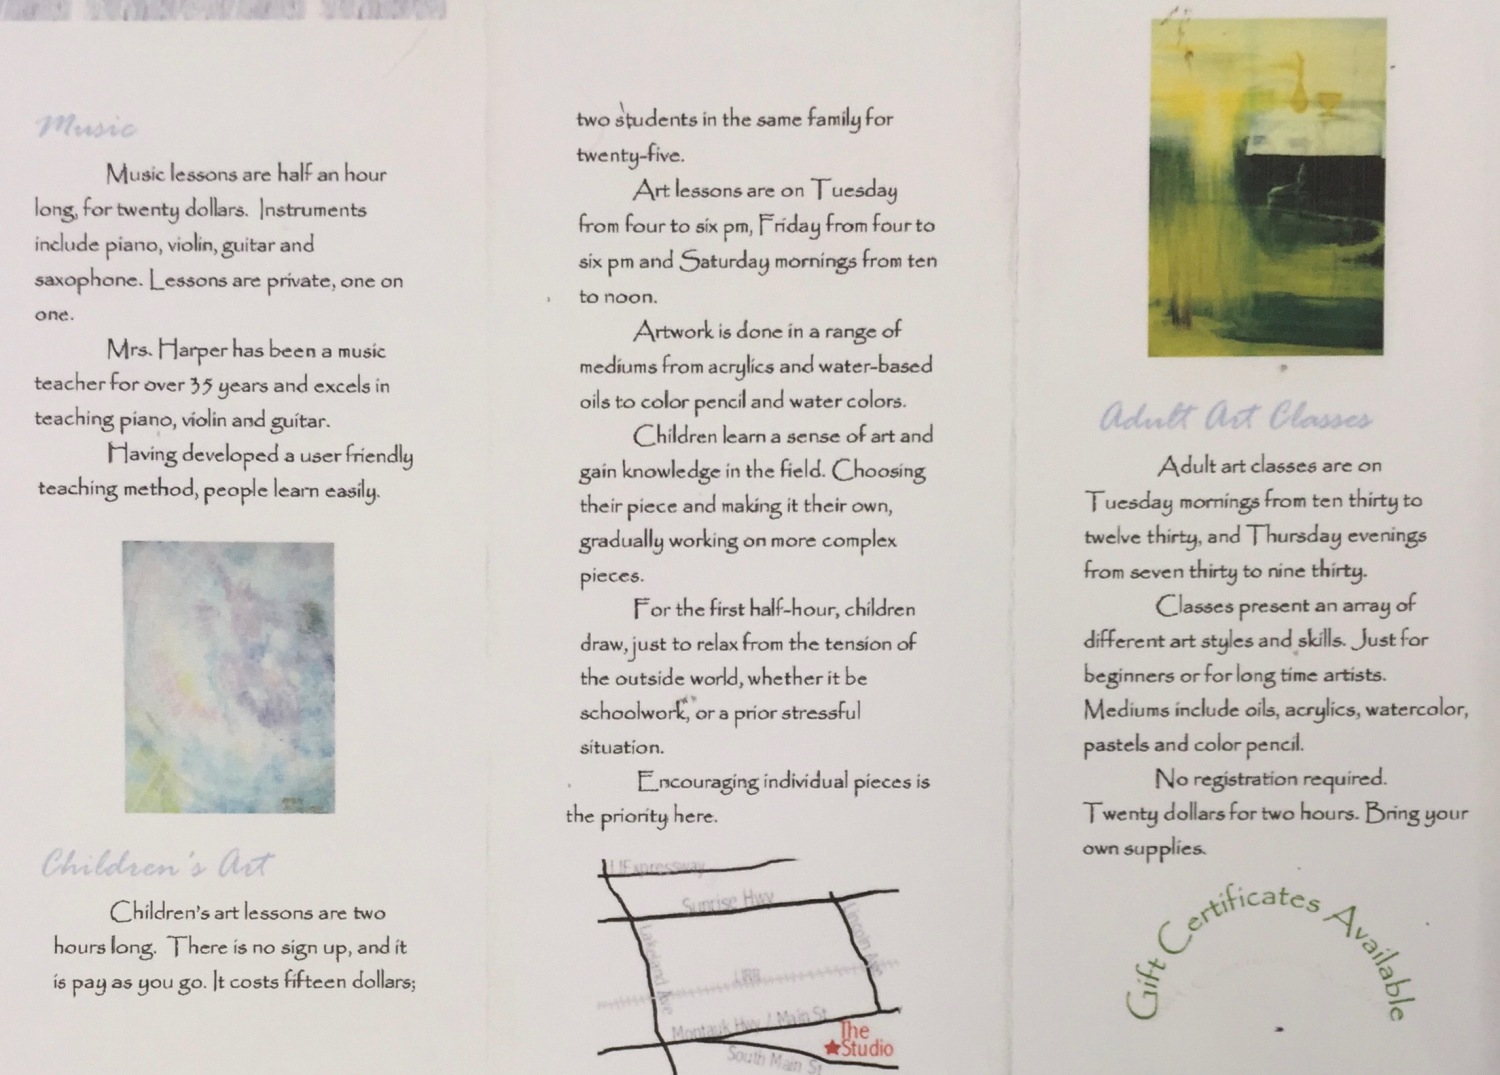 Music
Music lessons are half an hour
long, for twenty dollars. Instruments
include piano, violin, guitar and
saxophone. Lessons are private, one on
one.
Mrs. Harper has been a music
teacher for over 35 years and excels in
teaching piano, violin and guitar.
Having developed a user friendly
teaching method, people learn easily.
Children's Art
Children's art lessons are two
hours long. There is no sign up, and it
is pay as you go. It costs fifteen dollars;
two students in the same family for
twenty-five.
Art lessons are on Tuesday
from four to six pm, Friday from four to
six pm and Saturday mornings from ten
to noon.
Artwork is done in a range of
mediums from acrylics and water-based
oils to color pencil and water colors.
Children learn a sense of art and
gain knowledge in the field. Choosing
their piece and making it their own,
gradually working on more complex
pieces.
For the first half-hour, children
draw, just to relax from the tension of
the outside world, whether it be
schoolwork, or a prior stressful
situation.
Encouraging individual pieces is
the priority here.
LIExpressway
Sunrise Hwy
Lincoln Ave
Lakeland Ave
LIRR
Montauk Hwy / Main St
South Main St
The
Studio
Adult Art Classes
Adult art classes are on
Tuesday mornings from ten thirty to
twelve thirty, and Thursday evenings
from seven thirty to nine thirty.
Classes present an array of
different art styles and skills. Just for
beginners or for long time artists.
Mediums include oils, acrylics, watercolor,
pastels and color pencil.
No registration required.
Twenty dollars for two hours. Bring your
own supplies.
Gift Certificates Available